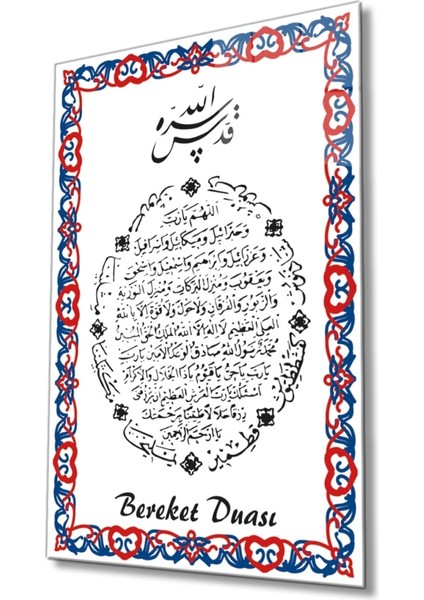 قدس الله سره
اللهم يا رب
وجبرائيل وميكائيل واسرافيل
وعزرائيل وابراهيم واسمعيل واسحق
ويعقوب ومنزل البركات ومنزل التورية
والزبور والفرقان ولا حول ولا قوة الا بالله
العلي العظيم لا اله الا الله الملك الحق المبين
محمد رسول الله صادق الوعد الامين يا رب
يا رب يا حي يا قيوم يا ذا الجلال والاكرام
اسئلك يا رب العرش العظيم ان ترزقني
رزقا حلالا طيبا برحمتك
يا ارحم الراحمين
Bereket Duası